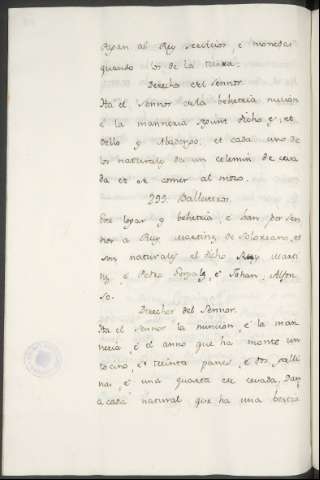 Pagan al Rey servicios, e monedas
quando los de la tierra.
Derecho del Sennor.
Ha el Sennor de la behetria nuncion
e la manneria segunt dicho es, et
dello y Abadengo, et cada uno de
los naturales da un celemin de ceva
da et de comer al mozo.
Balluercos.
Este logar es behetria, e han por Sen
nor a Ruy Martinz de Solorzano, et
son naturales el dicho Ruy Marti
nz, e Pedro Gonzalz, e Johan Alfon
so.
Derechos del Sennor.
Ha el Sennor la nuncion, e la man
neria, e el anno que ha monte un
tocino, e treinta panes, e dos galli
nas, e una quarta de cevada. Dan
a cada natural que ha una bestia